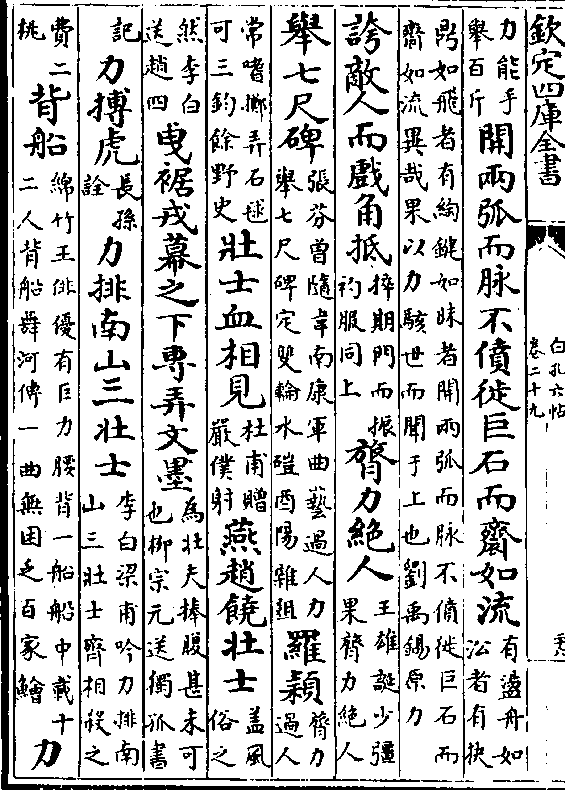 欽定四庫全書
白孔六帖
卷二十九
力能手
舉百斤
開兩弧而脉不僨徙巨石而齋如流
有盪舟如
泓者有抉
鼎如飛者有絢鍵如昧者開兩弧而脉不僨徙巨石而
齋如流異哉果以力駭世而聞于上也劉禹錫原力
誇敵人而戲角抵
捽期門而振
袀服同上
膂力絶人
王雄誕少彊
果膂力絶人
舉七尺碑
張芬曾隨韋南康軍曲藝過人力
舉七尺碑定雙輪水磑酉陽雜俎
羅穎
膂力
過人
常嗜擲弄石毬
可三鈞餘野史
壯士血相見
杜甫贈
嚴僕射
燕趙饒壯士
盖風
俗之
然李白
送趙四
曵裾戎幕之下專弄文墨
為壯夫捧腹甚未可
也柳宗元送獨孤書
記
力搏虎
長孫
詮
力排南山三壯士
李白梁甫吟力排南
山三壯士齊相殺之
費二
桃
背船
綿竹王俳優有巨力腰背一船船中載十
二人背船舞河傳一曲無困乏百家繪
力